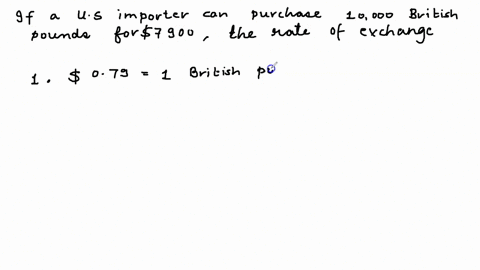 If a U.S importer can purchase 10,000 British
pounds for $7900, the rate of exchange
1. $ 0.79 = 1 British po